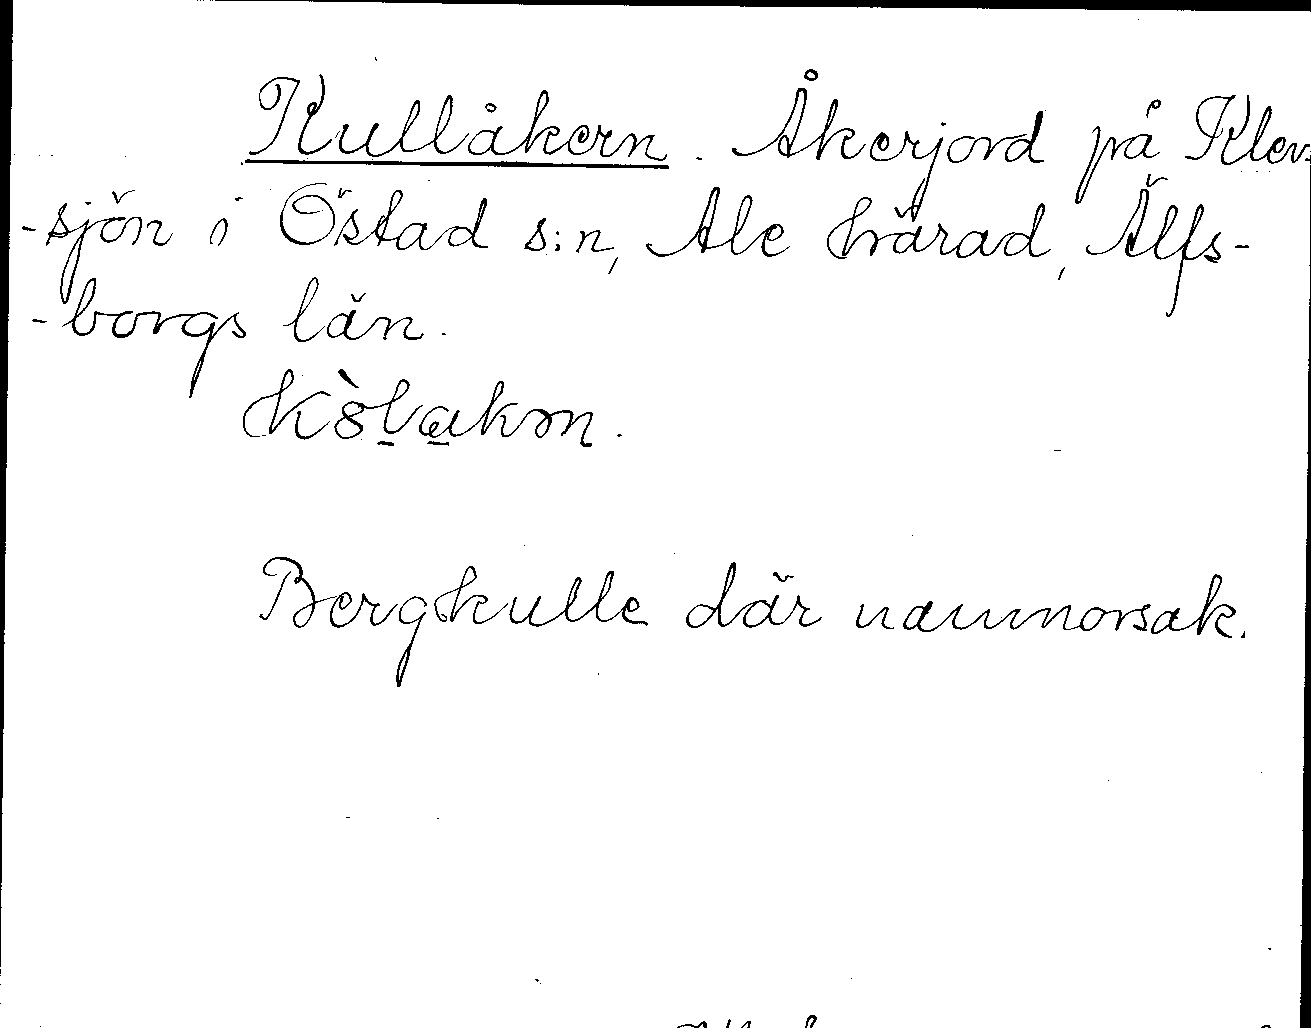 Kullåkern. Åkerjord på Klev-
-sjön i Östad s:n, Ale härad, Älfs-
-borgs län.
Bergkulle där namnorsak.